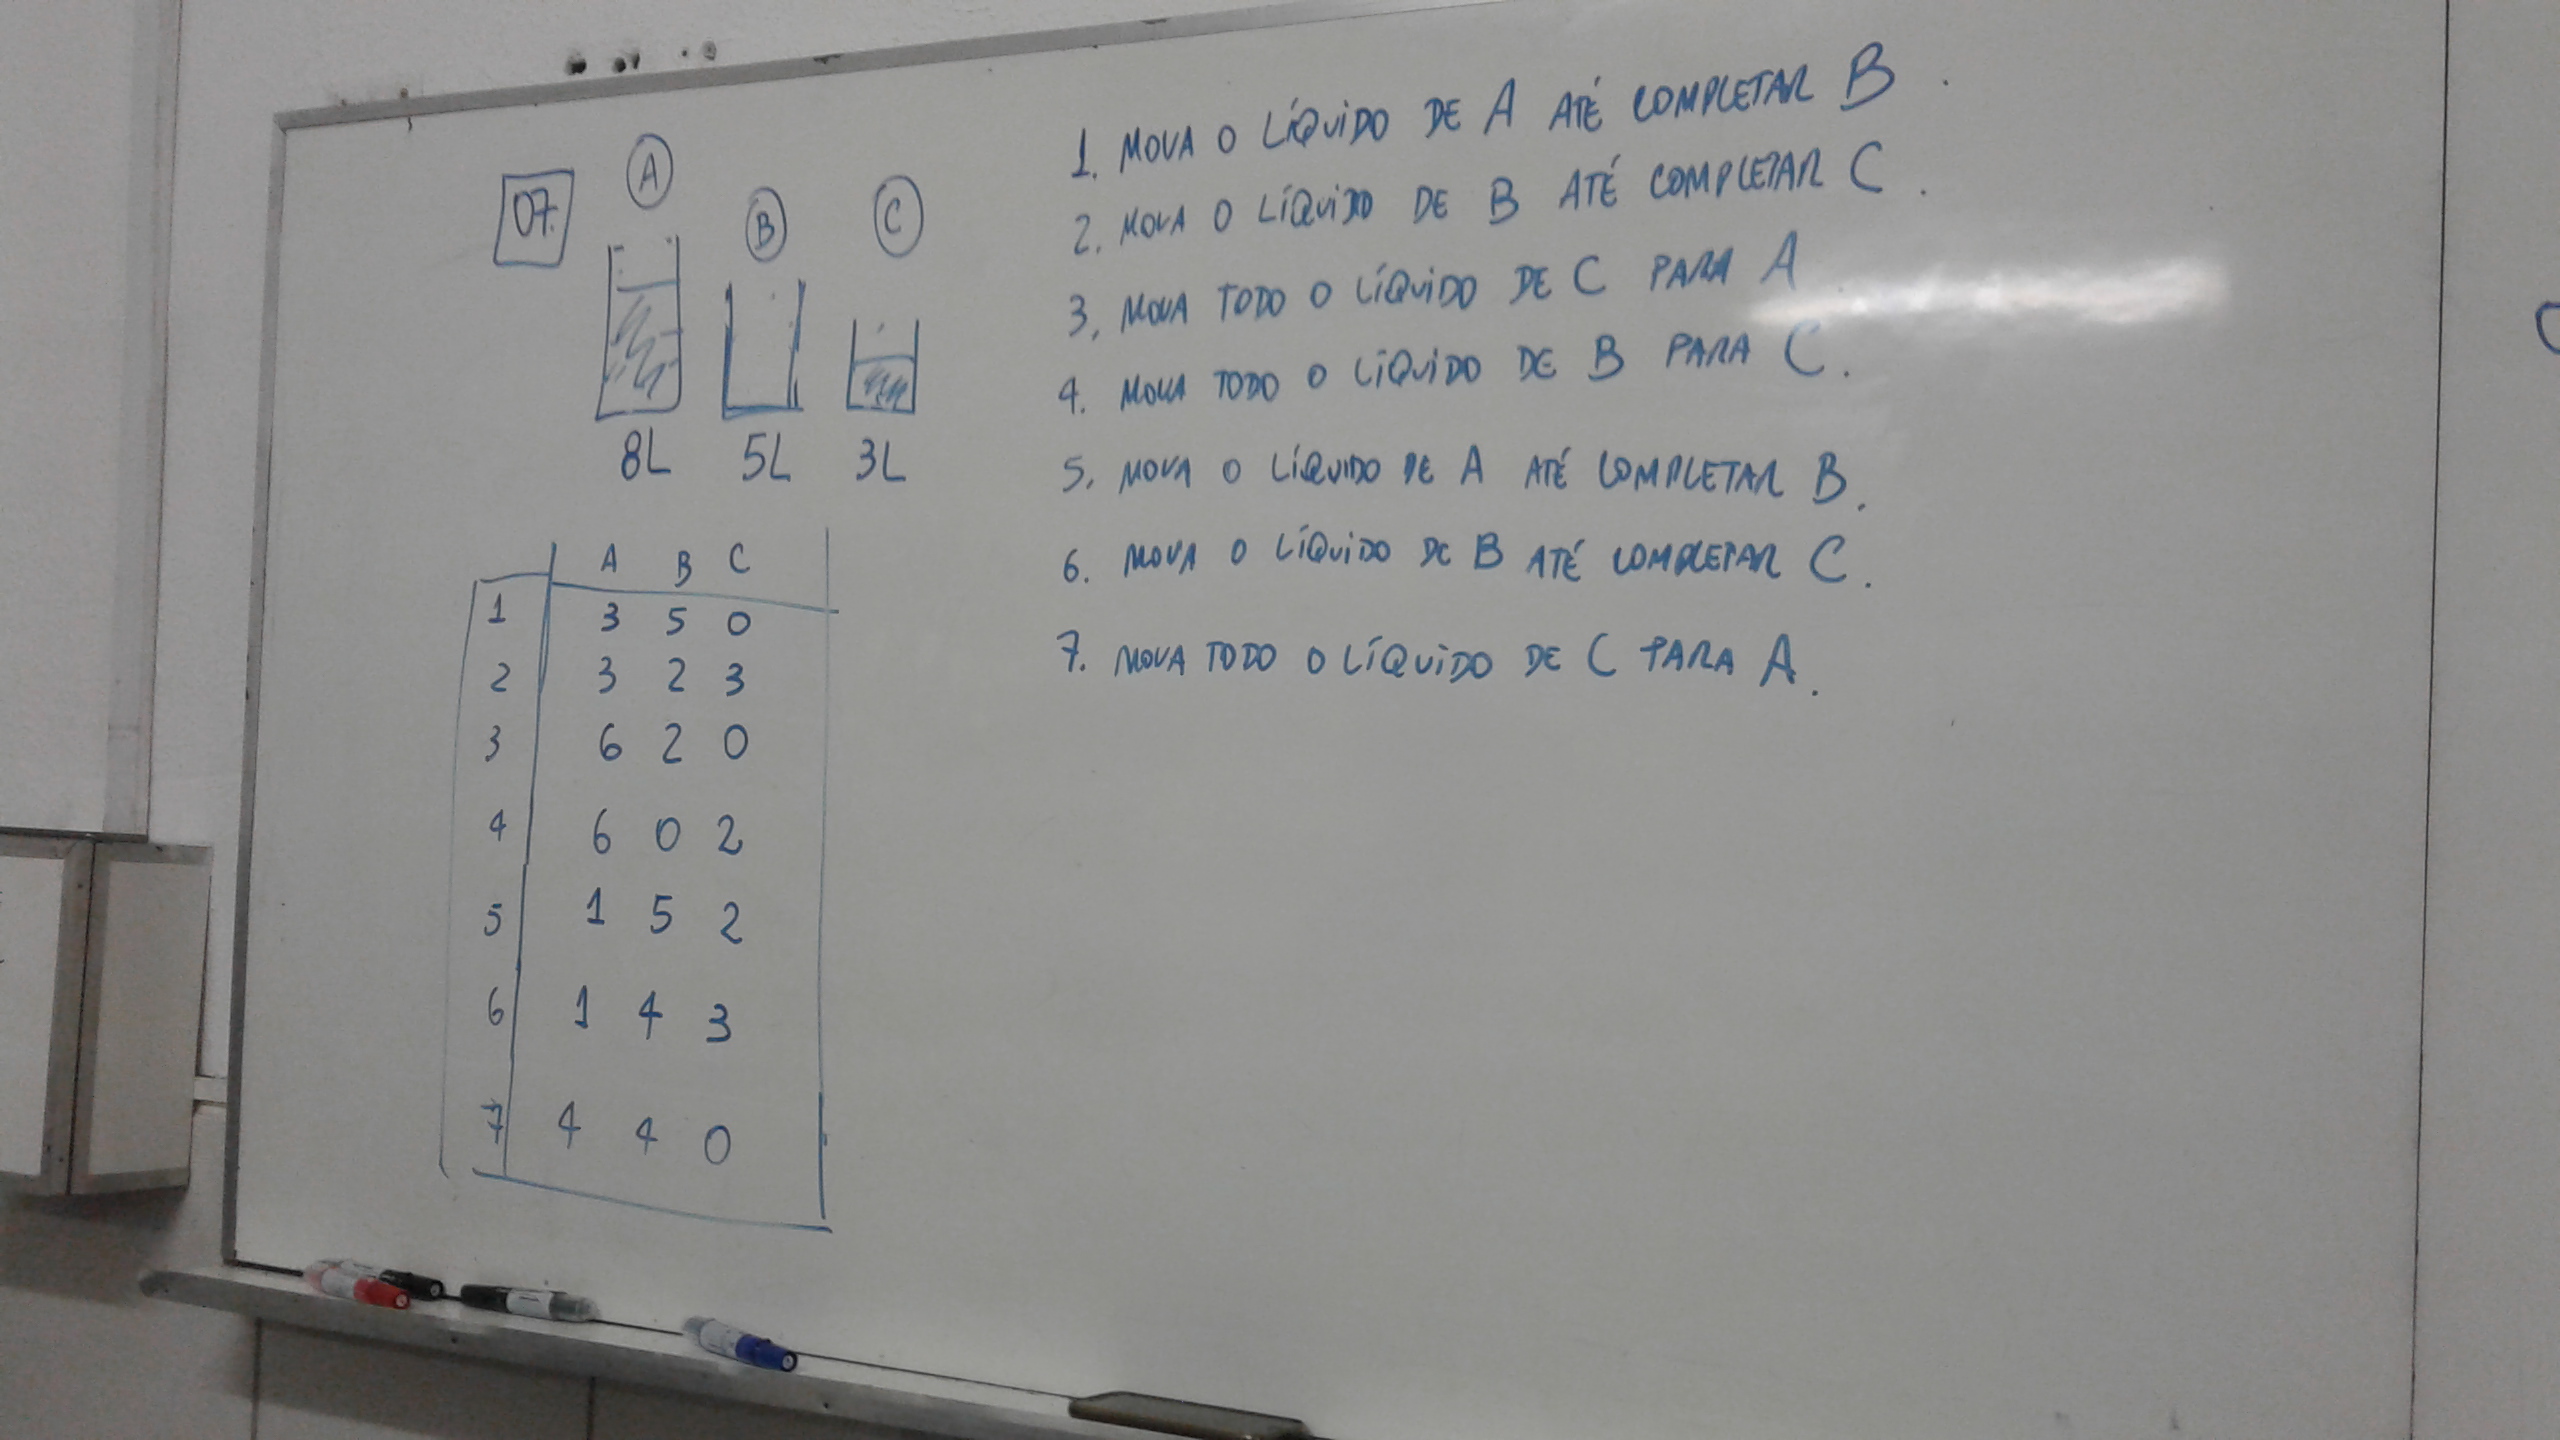 07.
A B C
8L 5L 3L
A B C
1 3 5 0
2 3 2 3
3 6 2 0
4 6 0 2
5 1 5 2
6 1 4 3
7 4 4 0
1. MOVA O LÍQUIDO DE A ATÉ COMPLETAR B.
2. MOVA O LÍQUIDO DE B ATÉ COMPLETAR C.
3. MOVA TODO O LÍQUIDO DE C PARA A
4. MOVA TODO O LÍQUIDO DE B PARA C.
5. MOVA O LÍQUIDO DE A ATÉ COMPLETAR B.
6. MOVA O LÍQUIDO DE B ATÉ COMPLETAR C.
7. MOVA TODO O LÍQUIDO DE C PARA A.